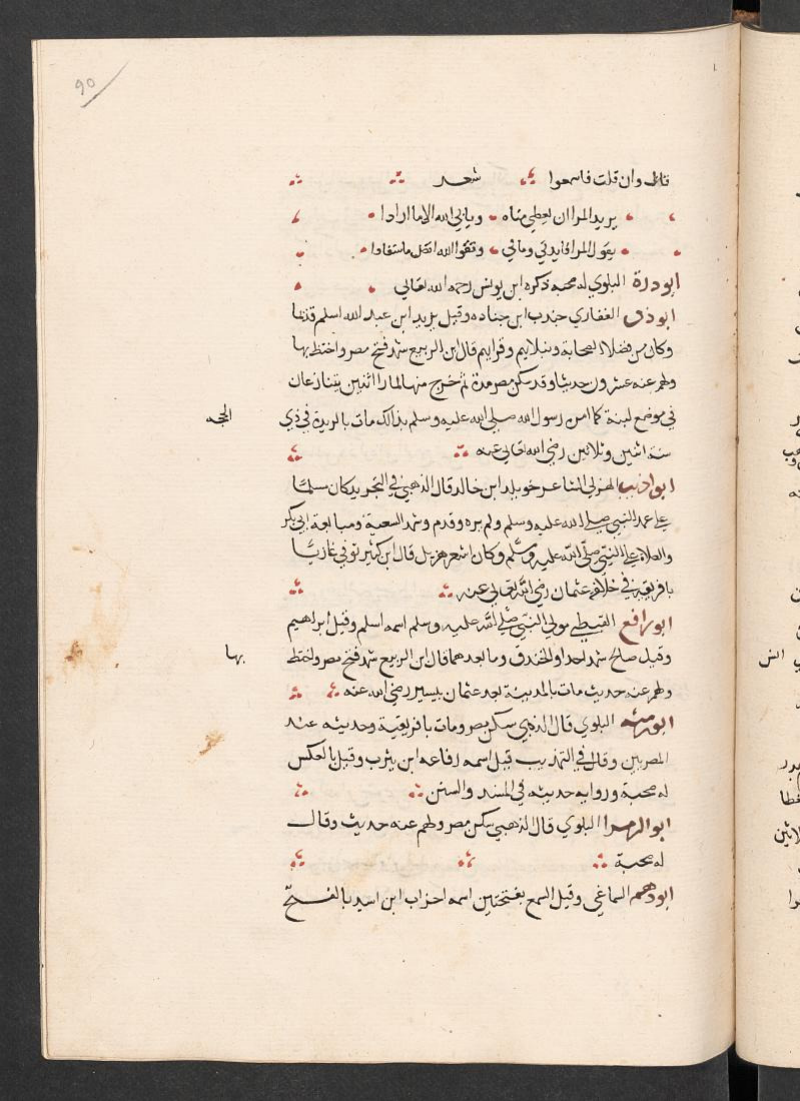 90
قال وان قلت فاسمعوا شعر
يريد المرا ان يعطي مناه ويابي الله الا ما ارادا
يقول المرا فايدتي ومالي وتقوا الله افضل ما ستفادا
ابو درة البلوي له صحبه ذكره ابن يونس رحمه الله تعالي
ابو ذر الغفاري جندب ابن جناده وقيل بريد ابن عبد الله اسلم قديما
وكان من فضلا الصحابة ونبلايهم وقرايهم قال ابن الربيع شهد فتح مصر واختط بها
ولهم عنه عشرون حديثا وقد سكن مصر مدة ثم خرج منها لما راا اثنين يتنازعان
في موضع لبنة كما امن رسول الله صلي الله عليه وسلم بذالك مات بالربدة في ذي
الحجه
سنه اثنين وثلاثين رضي الله تعالي عنه
ابو اذيب الهزلي الشاعر خويلد ابن خالد قال الذهبي في التجريد كان مسلما
علي عهد النبي صلي الله عليه وسلم ولم يره وقدم وشهد السعية ومبايعة ابي بكر
والصلاة علي النبي صلي الله عليه وسلم وكان اشعر هزيل قال ابن كثير توفي غازيا
بافريقية في خلافه عثمان رضي الله تعالي عنه
ابو رافع القبطي مولي النبي صلي الله عليه وسلم اسمه اسلم وقيل ابراهيم
وقيل صالح شهد احدا والخندق وما بعدهما قال ابن الربيع شهد فتح مصر واختط
بها
ولهم عنه حديث مات بالمدينة بعد عثمان بيسير رضي الله عنه
ابو رمثه البلوي قال الذهبي سكن مصر ومات بافريقية وحديثه عند
المصريين وقال في التهذيب قيل اسمه رفاعه ابن يثرب وقيل بالعكس
له صحبة وروايه حديثه في المسند والسنن
ابو الرمدا البلوي قال الذهبي سكن مصر ولهم عنه حديث وقال
له صحبة
ابو دهم السماعي وقيل السمع بفتحتين اسمه احزاب ابن اسيد بالفتح